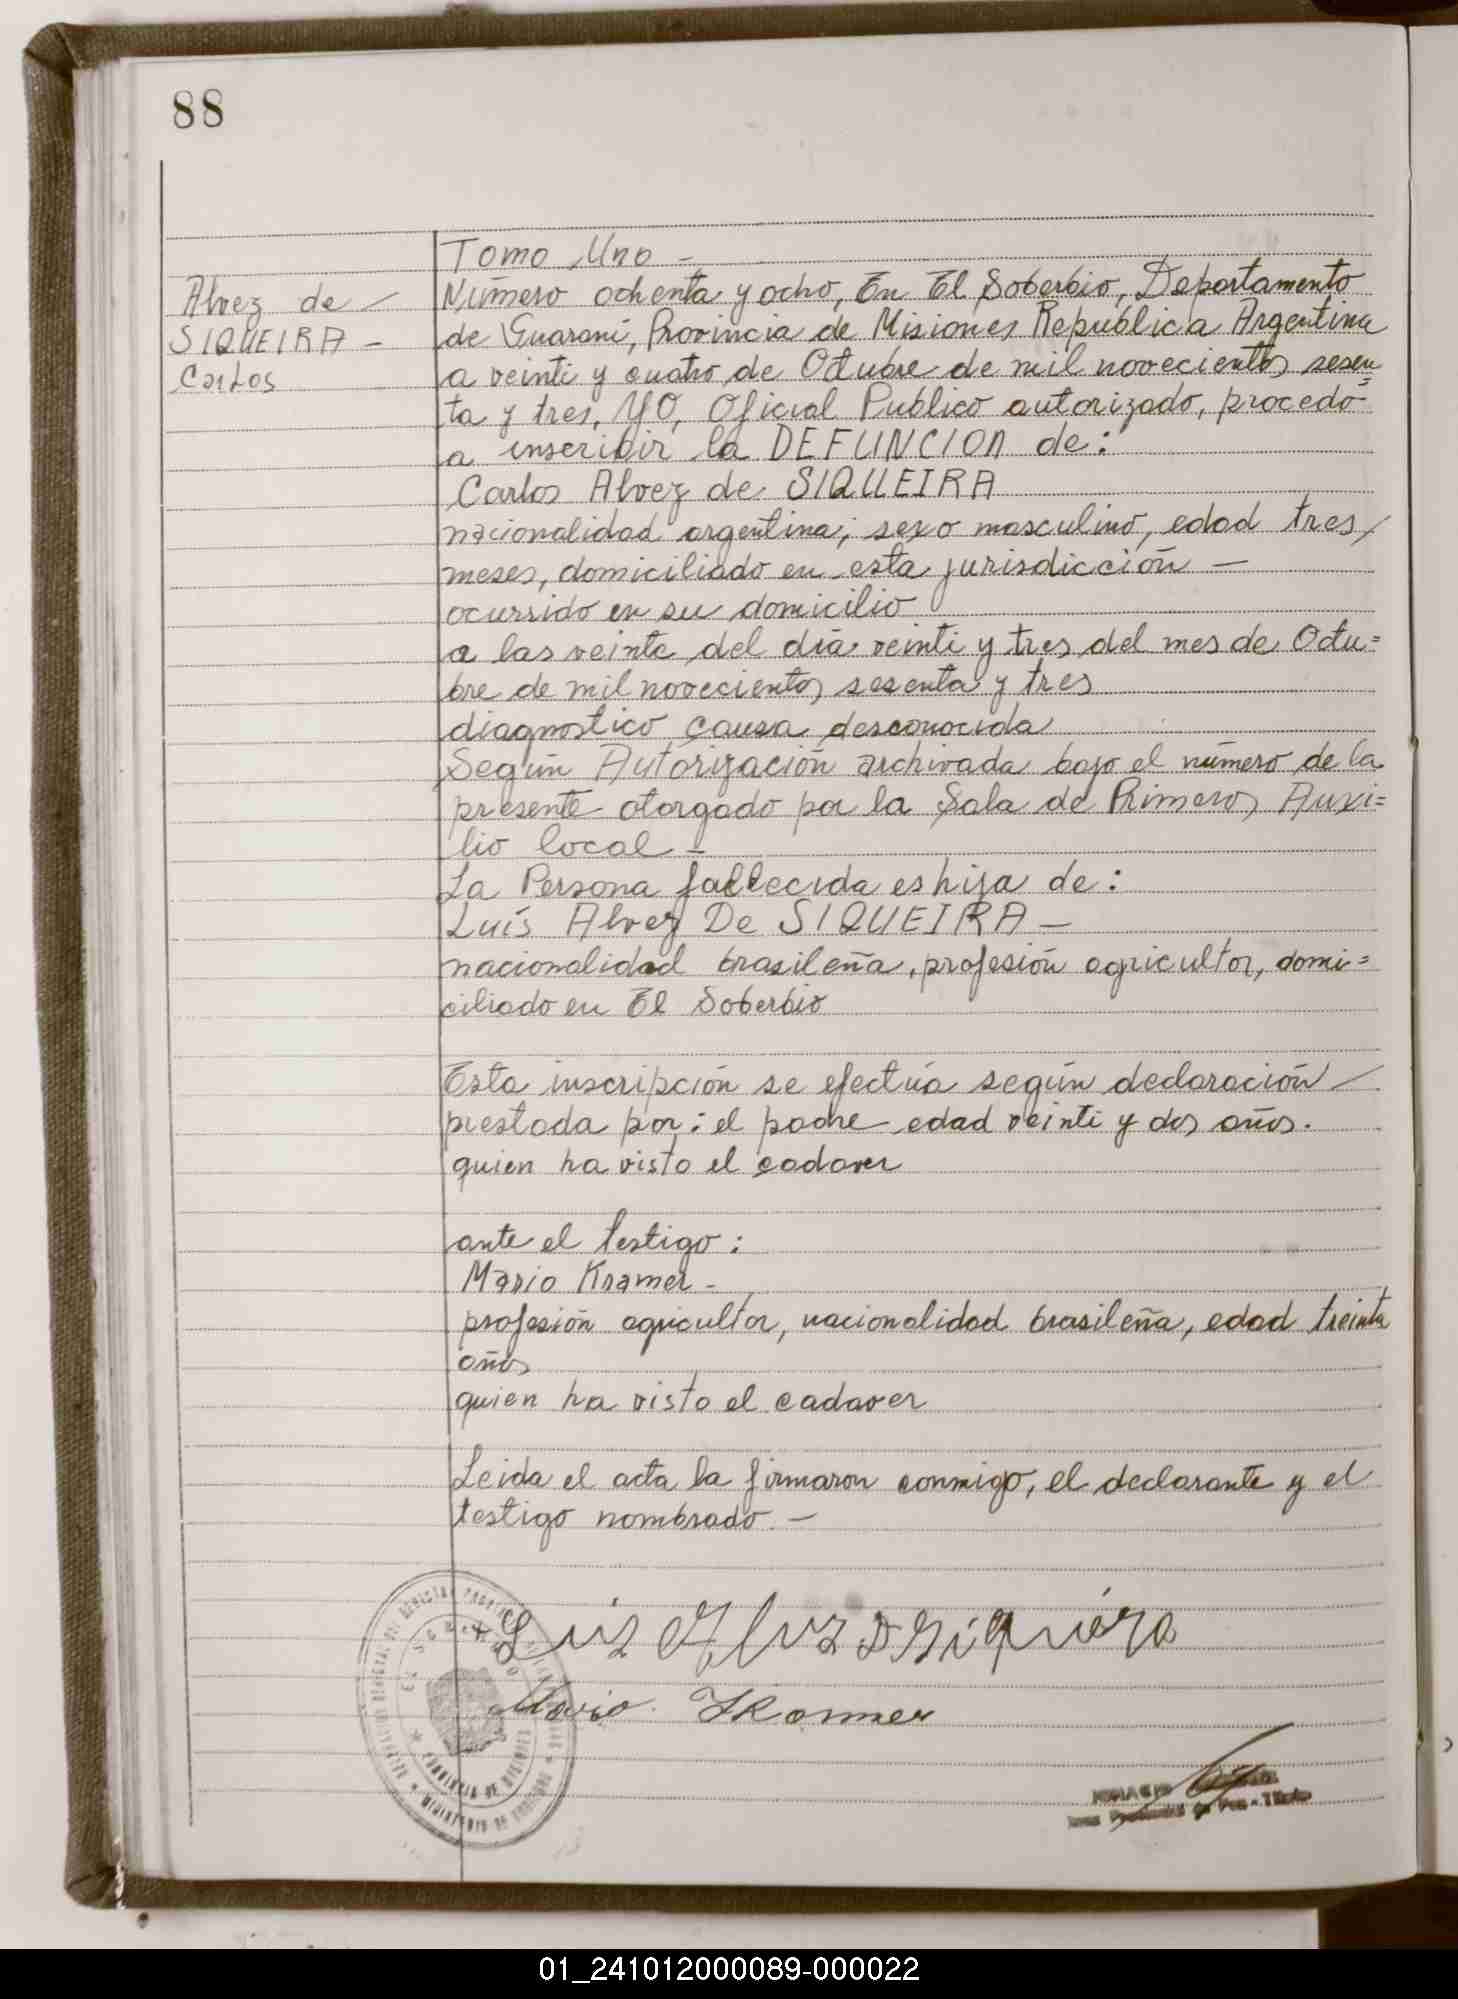 88
Tomo Uno -
Alvez de -
SIQUEIRA -
Carlos
Número ochenta y ocho, En El Soberbio, Departamento
de Guarani, Provincia de Misiones Republica Argentina
a veinti y cuatro de Octubre de mil novecientos sesen=
ta y tres, YO, Oficial Publico autorizado, procedo
a inscribir la DEFUNCION de:
Carlos Alvez de SIQUEIRA
nacionalidad argentina; sexo masculino, edad tres
meses, domiciliado en esta jurisdicción -
ocurrido en su domicilio
a las veinte del día veinti y tres del mes de Octu=
bre de mil novecientos sesenta y tres
diagnostico causa desconocida
Según Autorización archivada bajo el número de la
presente otorgado por la Sala de Primeros Auxi=
lio local -
La Persona fallecida es hija de:
Luís Alvez De SIQUEIRA -
nacionalidad brasileña, profesión agricultor, domi=
ciliado en El Soberbio
Esta inscripción se efectúa según declaración -
prestada por: el padre edad veinti y dos años.
quien ha visto el cadaver
ante el testigo:
Mario Kramer -
profesión agricultor, nacionalidad brasileña, edad treinta
años
quien ha visto el cadaver
Leida el acta la firmaron conmigo, el declarante y el
testigo nombrado. -
Luis
Mario Kramer
EL SOBERBIO
PROVINCIA DE MISIONES
01_241012000089-000022